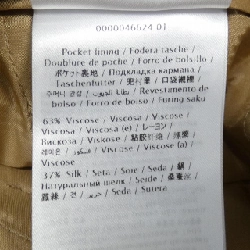 0000046624 01
Pocket lining / Fodera tasche /
Doublure de poche / Forro de bolsillo /
ポケット裏地 / Подкладка кармана /
Taschenfutter / 兜村裏 / 口袋襯裡 /
주머니 안감 /
Revestimento de
bolso / Furro do bolso / Furing saku
63% Viscose / Viscosa / Viscose /
Viscosa / Viscosa (e) / レーヨン /
Вискоза / Viskose /
레이온 / Viscose / Viscosa /
Viscose
37% Silk / Seta / Soie / Seda / 絹 /
Натуральный шелк / Seide /
Seda / Sutera